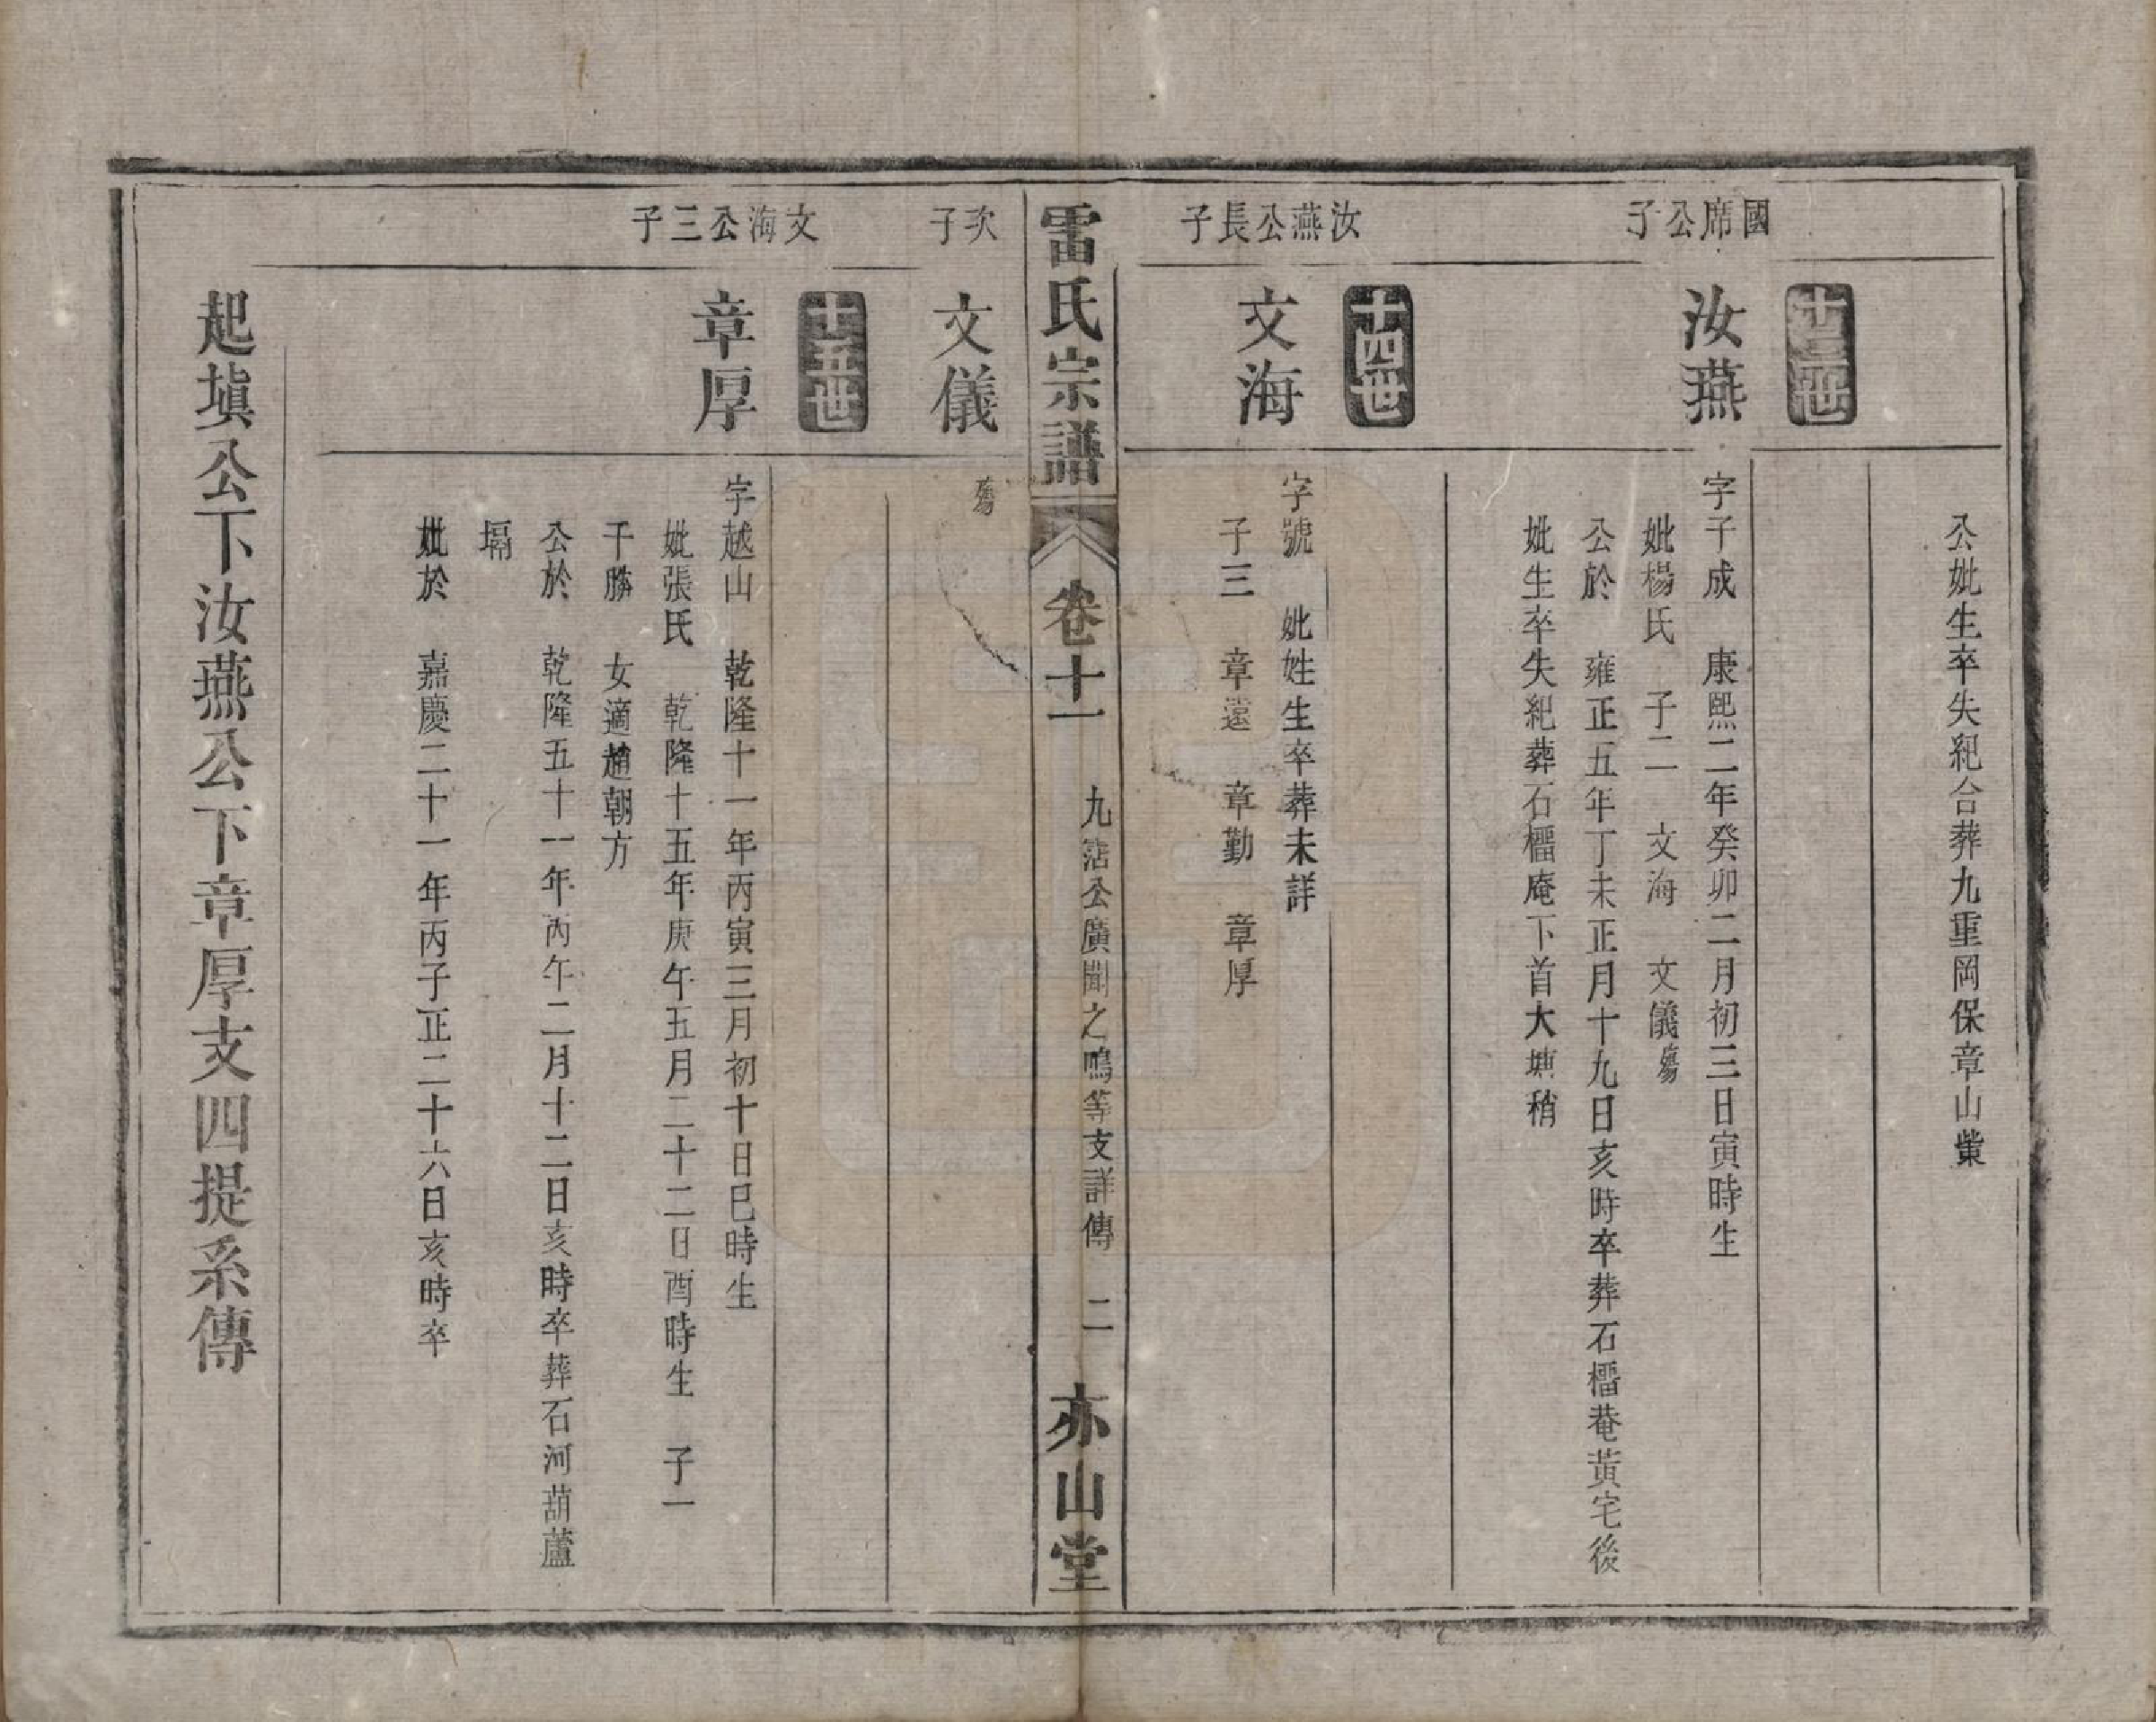 公妣生卒失紀合葬九重岡保章山
十三世
國席公子
汝燕
字子成　康熙二年癸卯二月初三日寅時生
妣楊氏　子二　文海　文儀殤
公於　雍正五年丁未正月十九日亥時卒葬石橊菴黃宅後
妣生卒失紀葬石橊庵下首大塘稍
十四世
汝燕公長子
文海
字號　妣姓生卒葬未詳
子三　章遠　章勤　章厚
雷氏宗譜　卷十一　九沾公廣聞之鳴等支詳傳　二　亦山堂
次子
文儀
殤
十五世
文海公三子
章厚
字越山　乾隆十一年丙寅三月初十日巳時生
妣張氏　乾隆十五年庚午五月二十二日酉時生　子一
千勝　女適趙朝方
公於　乾隆五十一年丙午二月十二日亥時卒葬石河葫蘆
塥
妣於　嘉慶二十一年丙子正二十六日亥時卒
起塡公下汝燕公下章厚支四提系傳